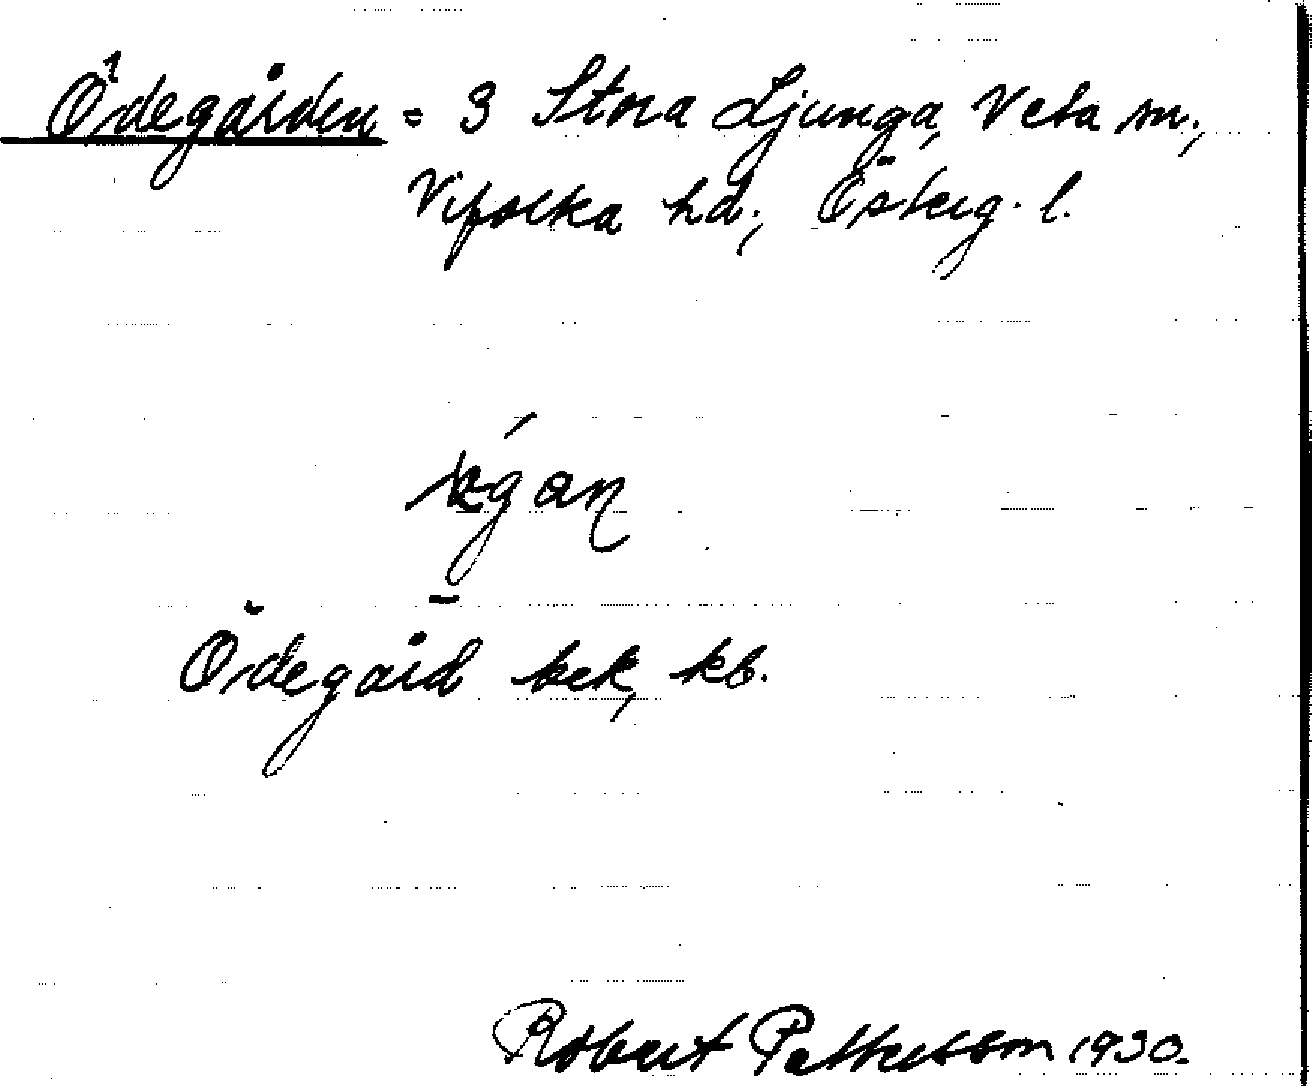 Ödegården = 3 Stora Ljunga, Veta sn.,
Vifolka hd., Österg. l.
Ödegård bek, kb.
Robert Pettersson 1930.